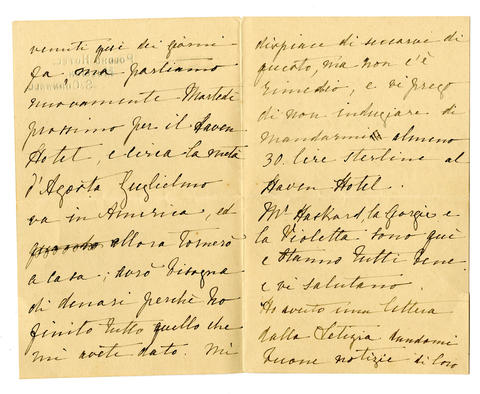 venuti qui dei giorni
fa, ma partiamo
nuovamente Martedì
prossimo per il Haven
Hotel, e circa la metà
d'Agosto Guglielmo
va in America, ed
allora tornerò
a casa; avrò bisogno
di denari perchè ho
finito tutto quello che
mi avete dato. Mi
dispiace di seccarvi di
questo, ma non c'è
rimedio, e vi prego
di non indugiare di
mandarmi almeno
30 lire sterline al
Haven Hotel.
Mr Haskard, la Gorgie e
la Violetta sono quì
e stanno tutti bene
e vi salutano.
Ho avuto una lettera
dalla Letizia dandomi
buone notizie di loro
POLDHU HOTEL